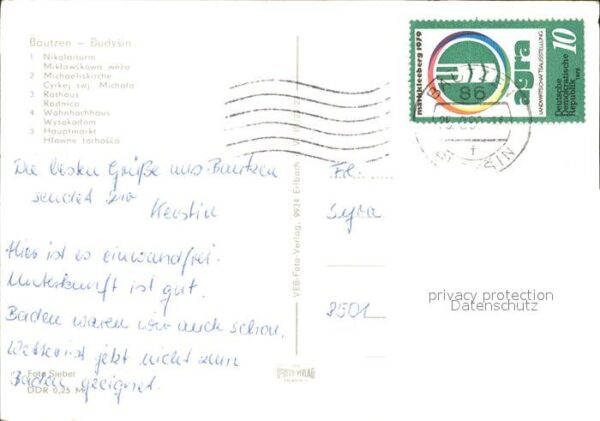 Bautzen – Budyšin
1 Nikolaiturm
Mikławškowa wěža
2 Michaeliskirche
Cyrkej swj. Michała
3 Rathaus
Radnica
4 Wohnhochhaus
Wysokodom
5 Hauptmarkt
Hłowne torhošćo
Die besten Grüße aus Bautzen
sendet Dir
Kerstin
Hier ist es einwandfrei.
Unterkunft ist gut.
Baden waren wir auch schon.
Wetter ist jetzt nicht zum
Baden geeignet.
Foto Sieber
DDR 0,25 M
VEB Foto-Verlag, 9934 Erlbach
markkleeberg 1979
agra
LANDWIRTSCHAFTSAUSSTELLUNG
10
Deutsche
Demokratische
Republik 1979
BAUTZEN
86
Frl.
8501
privacy protection
Datenschutz